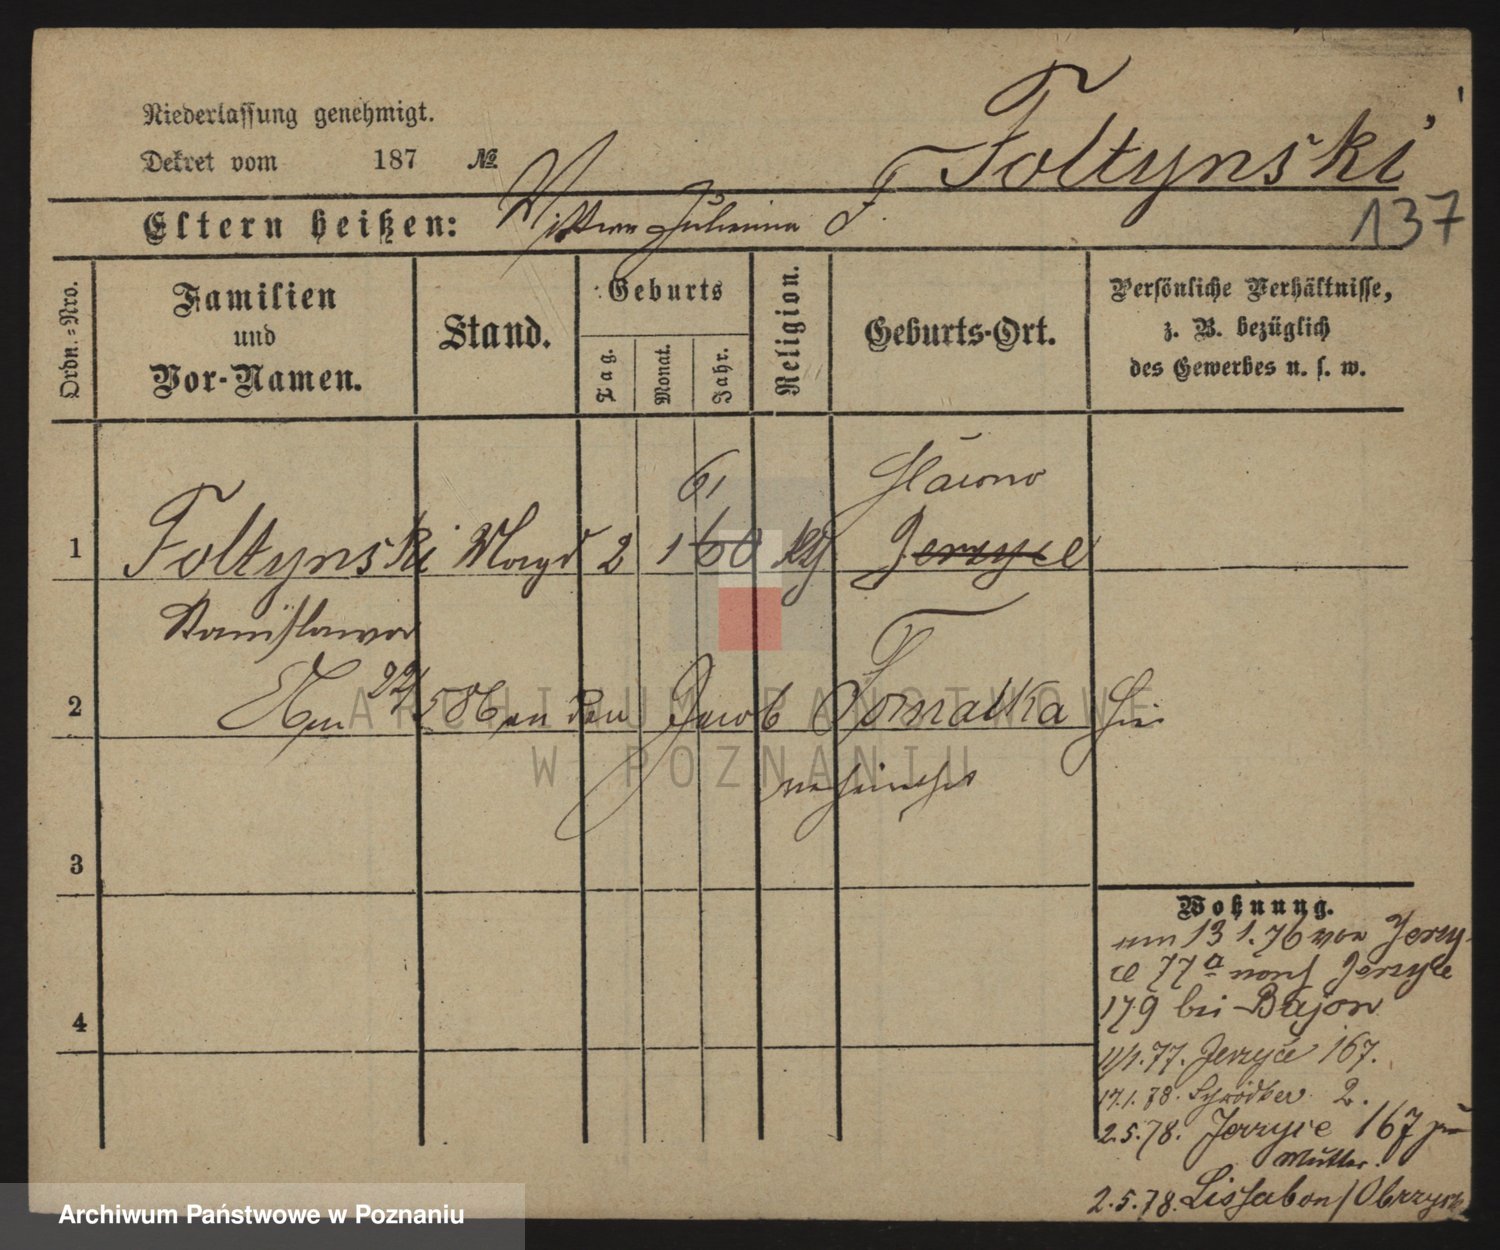 Niederlassung genehmigt.
Dekret vom 187 №
Foltynski
137
Eltern heißen: Wittwe Julianna F.
Ordn.-Nro.
Familien
und
Vor-Namen.
Stand.
Geburts
Tag.
Monat.
Jahr.
Religion.
Geburts-Ort.
Persönliche Verhältnisse,
z. B. bezüglich
des Gewerbes u. s. w.
61 Głowno
1 Foltynski Magd 2 1 60 Jerzyce
Stanislawa
2 Am 22/5 86 an den Jacob Tomalka hier
verheirathet
3
4
Wohnung.
am 13 1.76 von Jerzy-
ce 77a nach Jerzyce
179 bei Bajon
1/1.77. Jerzyce 167.
17.1.78. 2.
2.5.78. Jerzyce 167 zu
Mutter.
2.5.78. Lissabon/Obrzyck
ARCHIWUM PAŃSTWOWE
W POZNANIU
Archiwum Państwowe w Poznaniu